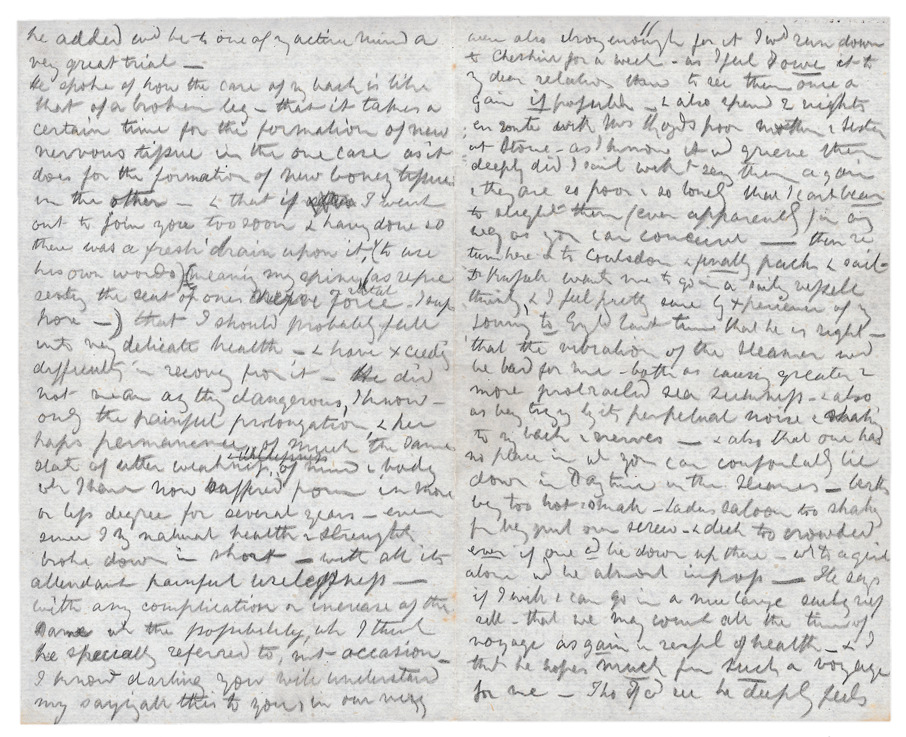 he added wd be to one of my active mind a
very great trial —
He spoke of how the case of my back is like
that of a broken leg — that it takes a
certain time for the formation of new
nervous tissue in the one case as it
does for the formation of new boney tissue
in the other — & that if I went
out to join you too soon & having done so
there was a fresh drain upon it, (to use
his own words) (meaning my spine, as repre
senting the seat of ones nerve force I sup
pose —) that I should probably fall
into very delicate health — & have xceedg
difficulty in recovg from it — He did
not mean anythg dangerous, I know —
only the painful prolongation, & per
haps permanence, of much the same
state of utter weakness, of mind & body
wh I have now suffered from in more
or less degree for several years — ever
since I my natural health & strength
broke down in short — with all its
attendant painful uselessness —
with any complication or increase of the
same wh the possibility, wh I think
he specially referred to, mt occasion —
I know darling you will understand
my sayg all this to you, in our very
were also strong enough for it I wd run down
to Cheshire for a week - as I feel I owe it to
my dear relations there to see them once a
gain if possible — & also spend 2 nights
en route with Mrs poor mother & sister
at Stone - as I know it wd grieve them
deeply did I sail witht seeg them again
& they are so poor & so lonely that I cant bear
to slight them (even apparently) in any
way as you can conceive — then re
turn here & to Coulsdon & finally pack & sail -
Dr want me to go in a sailg vessell
thinkg, & I feel pretty sure by xperience of my
journy to Engld last time that he is right —
that the vibration of the steamer wd
be bad for me - both as causing greater &
more protracted sea sickness - & also
as beg tryg by its perpetual noise & shakg
to my back & nerves — & also that one has
no place in wh you can comfortably lie
down in Daytime in the steamer — berths
beg too hot & small - Ladies saloon too shaky
fr beg just over screw - & deck too crowded
even if one cd lie down up there - wh to a girl
alone wd be almost imposs — He says
if I wish I can go in a nice large sailg ves
sell - that we may count all the time of
voyage as gain in respect of health — & I
that he hopes much from such a voyage
for me — Tho I cd see he deeply feels